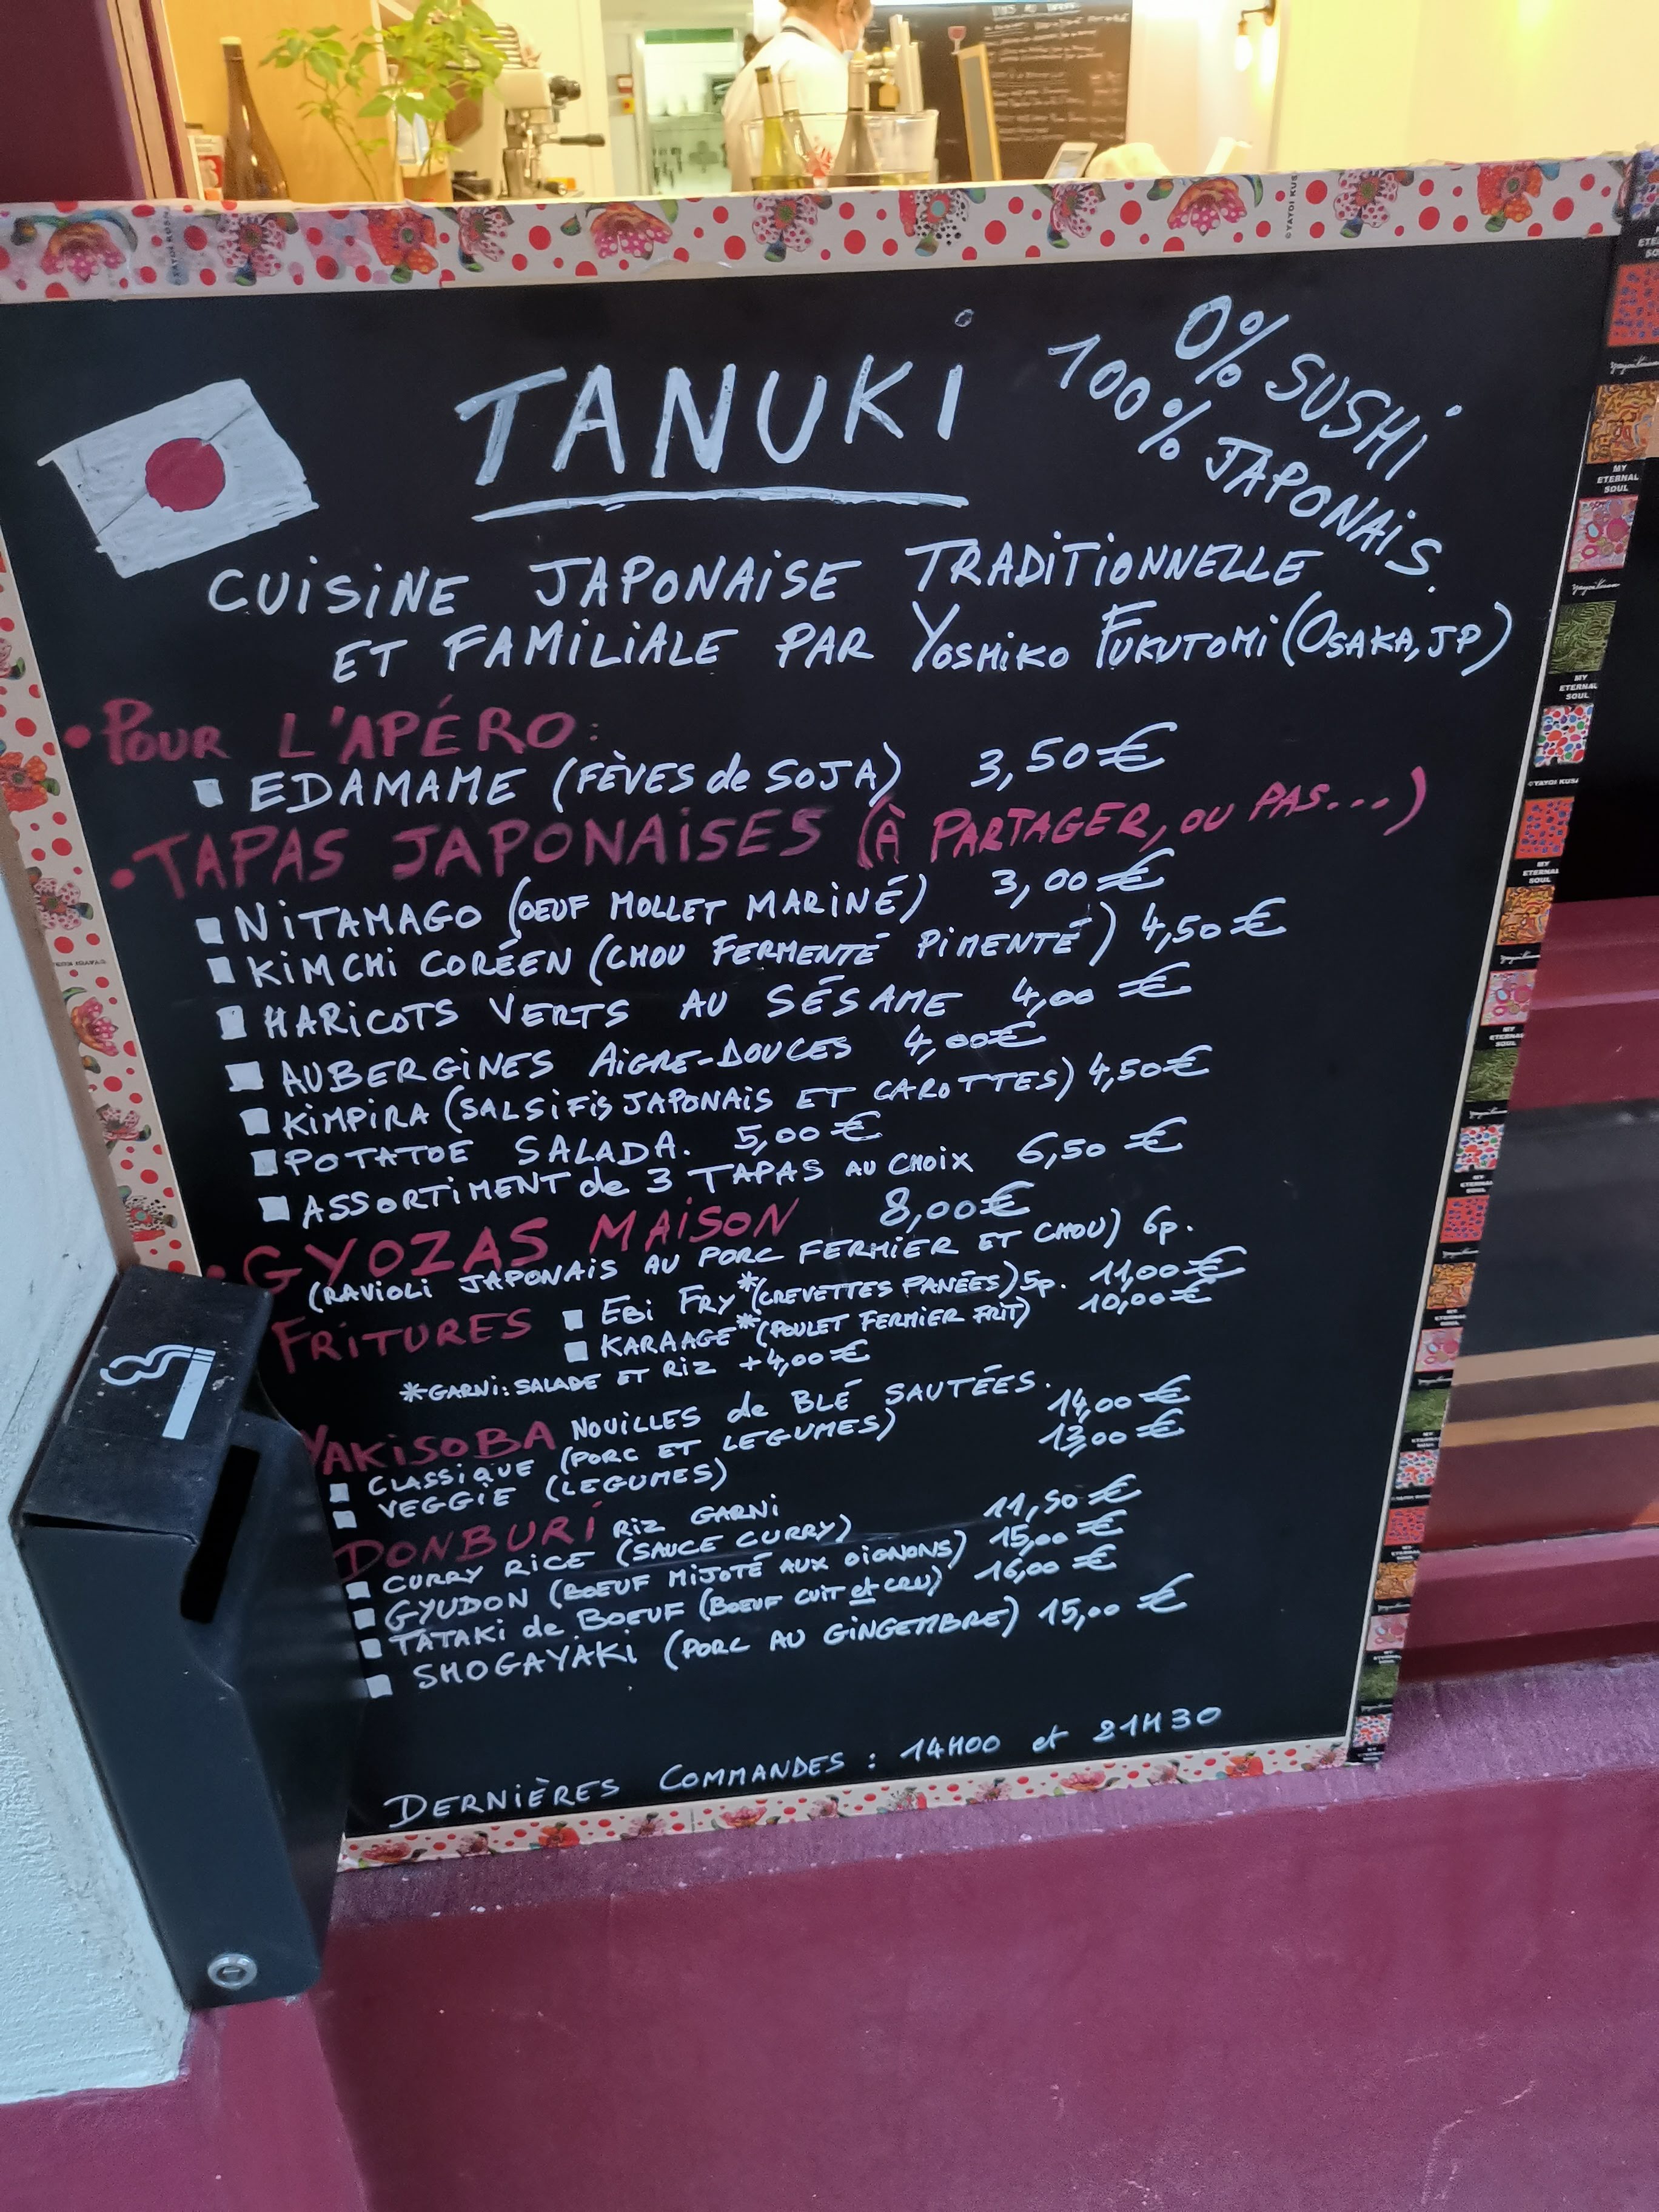 TANUKi
0% SUSHi
100% JAPONAiS.
CUiSiNE JAPONAiSE TRADiTiONNELLE
ET FAMiLiALE PAR YOSHiKO FUKUTOMi (OSAKA, JP)
• POUR L'APÉRO:
EDAMAME (FÈVES de SOJA) 3,50€
• TAPAS JAPONAiSES (À PARTAGER, OU PAS...)
NiTAMAGO (OEUF MOLLET MARiNÉ) 3,00€
KiMCHi CORÉEN (CHOU FERMENTÉ PiMENTÉ) 4,50€
HARiCOTS VERTS AU SÉSAME 4,00€
AUBERGiNES AiGRE-DOUCES 4,00€
KiMPiRA (SALSiFiS JAPONAiS ET CAROTTES) 4,50€
POTATOE SALADA. 5,00€
ASSORTiMENT de 3 TAPAS AU CHOiX 6,50€
• GYOZAS MAiSON 8,00€
(RAViOLi JAPONAiS AU PORC FERMiER ET CHOU) 6p.
FRiTURES
EBi FRY* (CREVETTES PANÉES) 5p. 11,00€
KARAAGE* (POULET FERMiER FRiT) 10,00€
*GARNi: SALADE ET RiZ +4,00€
YAKiSOBA NOUiLLES de BLÉ SAUTÉES.
CLASSiQUE (PORC ET LEGUMES) 14,00€
VEGGiE (LEGUMES) 13,00€
DONBURi RiZ GARNi
CURRY RiCE (SAUCE CURRY) 11,50€
GYUDON (BOEUF MiJOTÉ AUX OiGNONS) 15,00€
TATAKi de BOEUF (BOEUF CUiT et CRU) 16,00€
SHOGAYAKi (PORC AU GiNGEMBRE) 15,00€
DERNiÈRES COMMANDES : 14H00 et 21H30
MY
ETERNAL
SOUL
MY
ETERNAL
SOUL